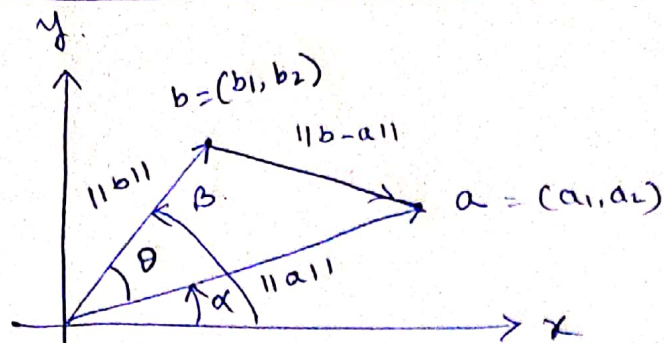 y.
b=(b1, b2)
||b-a||
||b||
β.
a = (a1, a2)
θ
||a||
α
x